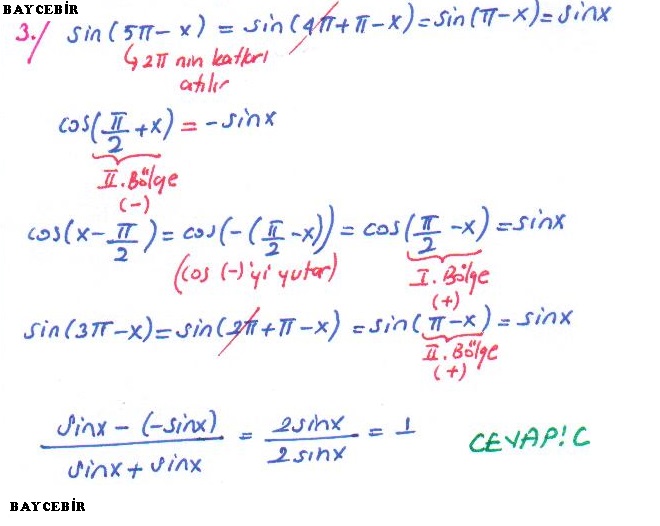 BAYCEBİR
3./ sin(5π-x) = sin(4π+π-x)=sin(π-x)=sinx
↳2π nin katları
atılır
cos(π/2+x) = -sinx
II.Bölge
(-)
cos(x-π/2)=cos(-(π/2-x))= cos(π/2-x)=sinx
(cos (-)'yi yutar) I. Bölge
(+)
sin(3π-x)=sin(2π+π-x) =sin(π-x)=sinx
II.Bölge
(+)
sinx-(-sinx)/sinx+sinx = 2sinx/2sinx = 1 CEVAP!C
BAYCEBİR